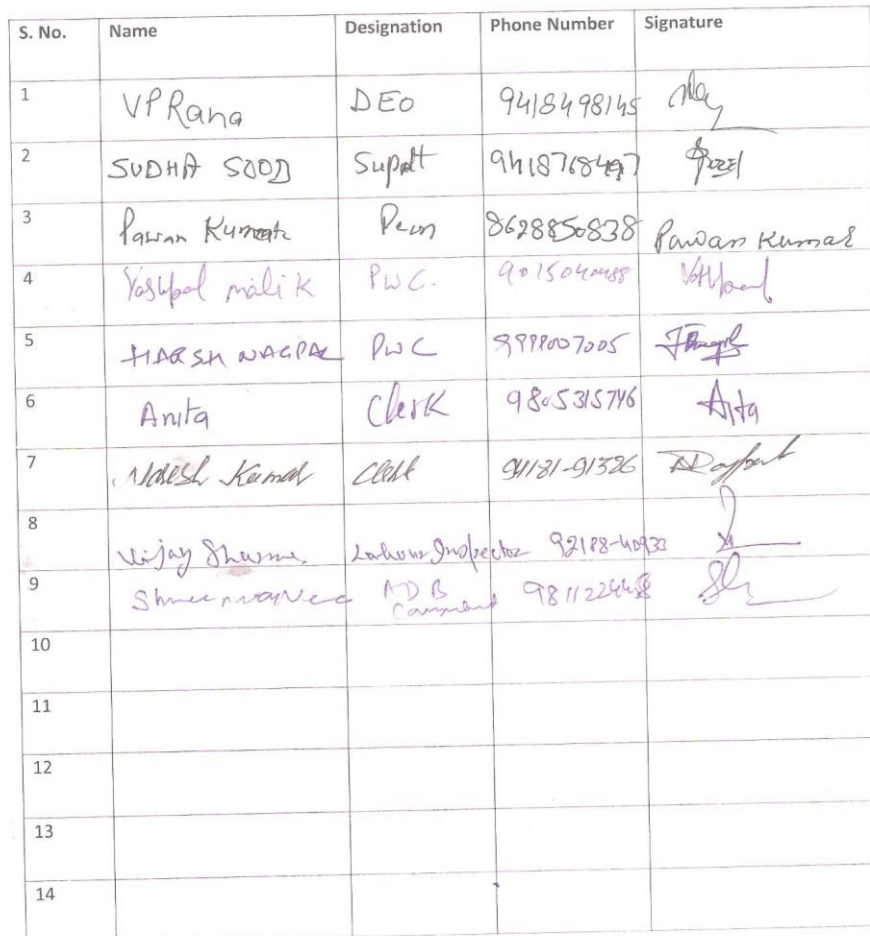 S. No. Name Designation Phone Number Signature
1 VP Rana DEO 9418498145
2 SUDHA SOOD Supdt 9418768497 Sood
3 Pawan Kumar Peon 8628850838 Pawan Kumar
4 Yashpal malik PWC. Yashpal
5 HARSH NAGPAL PWC 9999007005
6 Anita Clerk 9805315746 Anita
7 Naresh Kumar Clerk 94181-91326
8 Vijay Sharma Labour Inspector 92188-40933
9 ADB
10
11
12
13
14